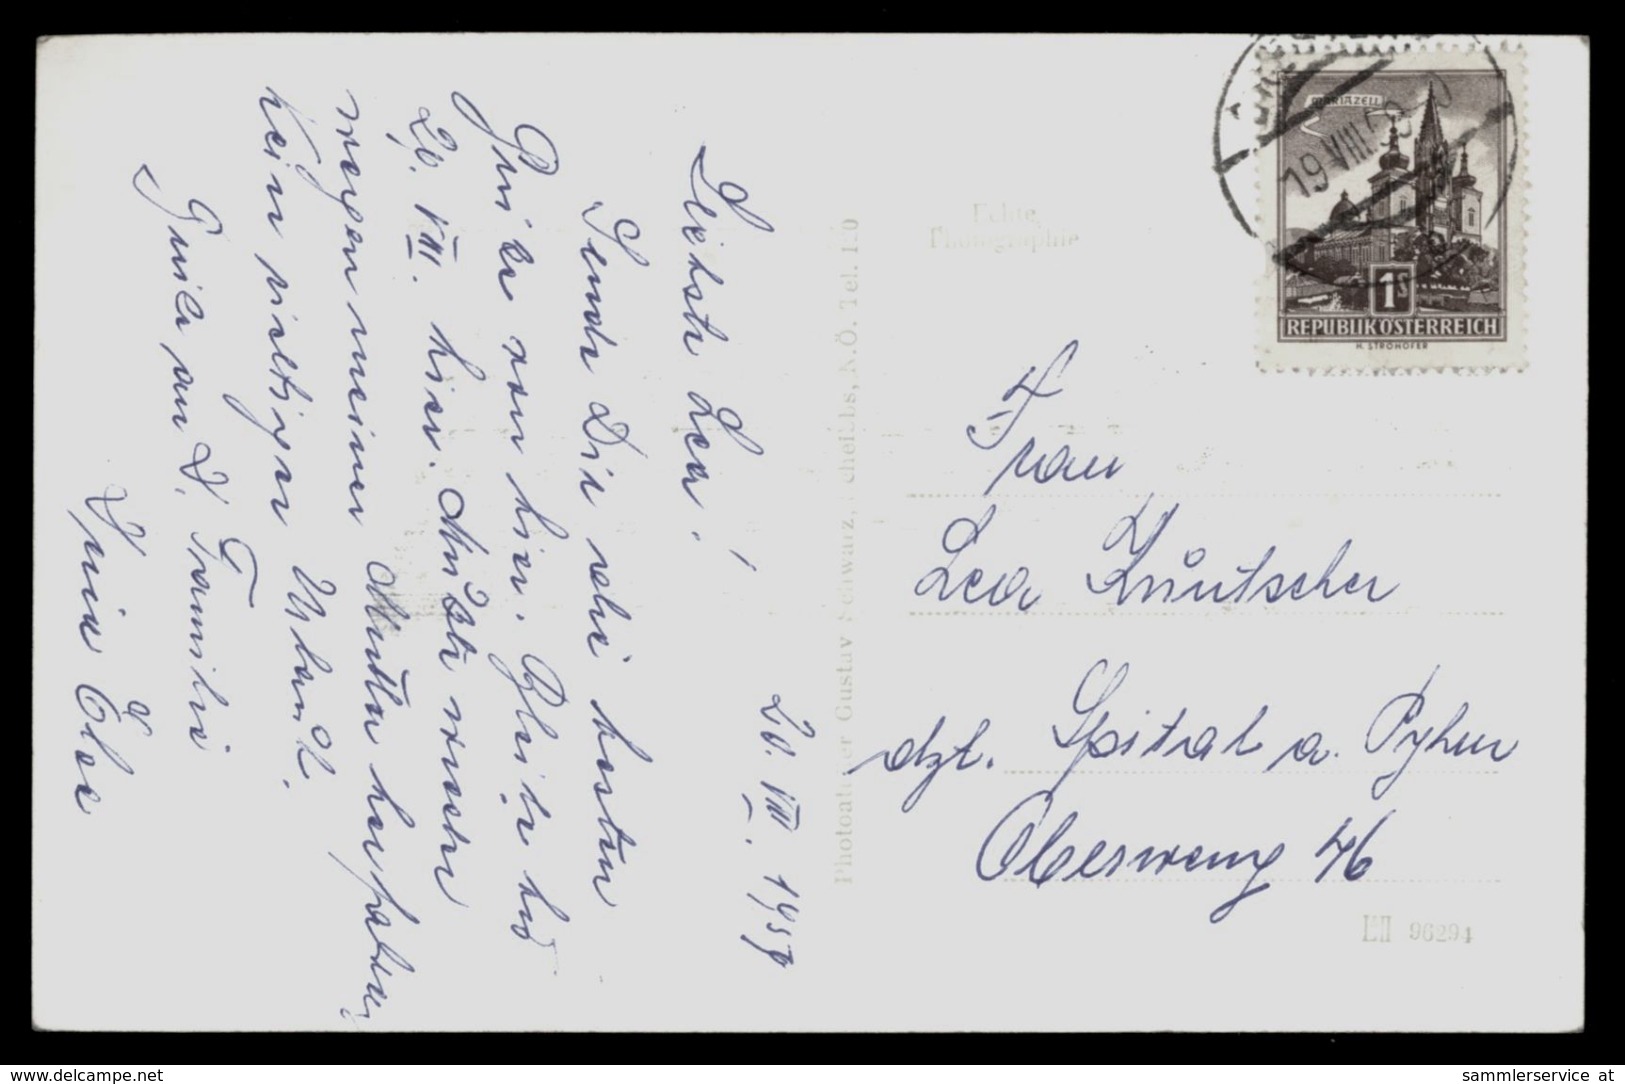 20. VIII. 1959
Liebste Lea!
Sende Dir recht herzten
Grüße von hier. Bleibe bis
29. VIII. hier. Mußte wieder
wegen meiner Mutter herfahren,
kein richtigen Urlaub.
Grüße an D. Familie
Deine Else
Photoatelier Gustav Schwarz, Scheibbs, N.Ö. Tel. 120
Echte
Photographie
MARIAZELL
19 VIII 59
1S
REPUBLIK ÖSTERREICH
H. STROHOFER
Frau
Lea
dzt. Spital a. Pyhrn
Oberweng 46
96294
www.delcampe.net
sammlerservice at